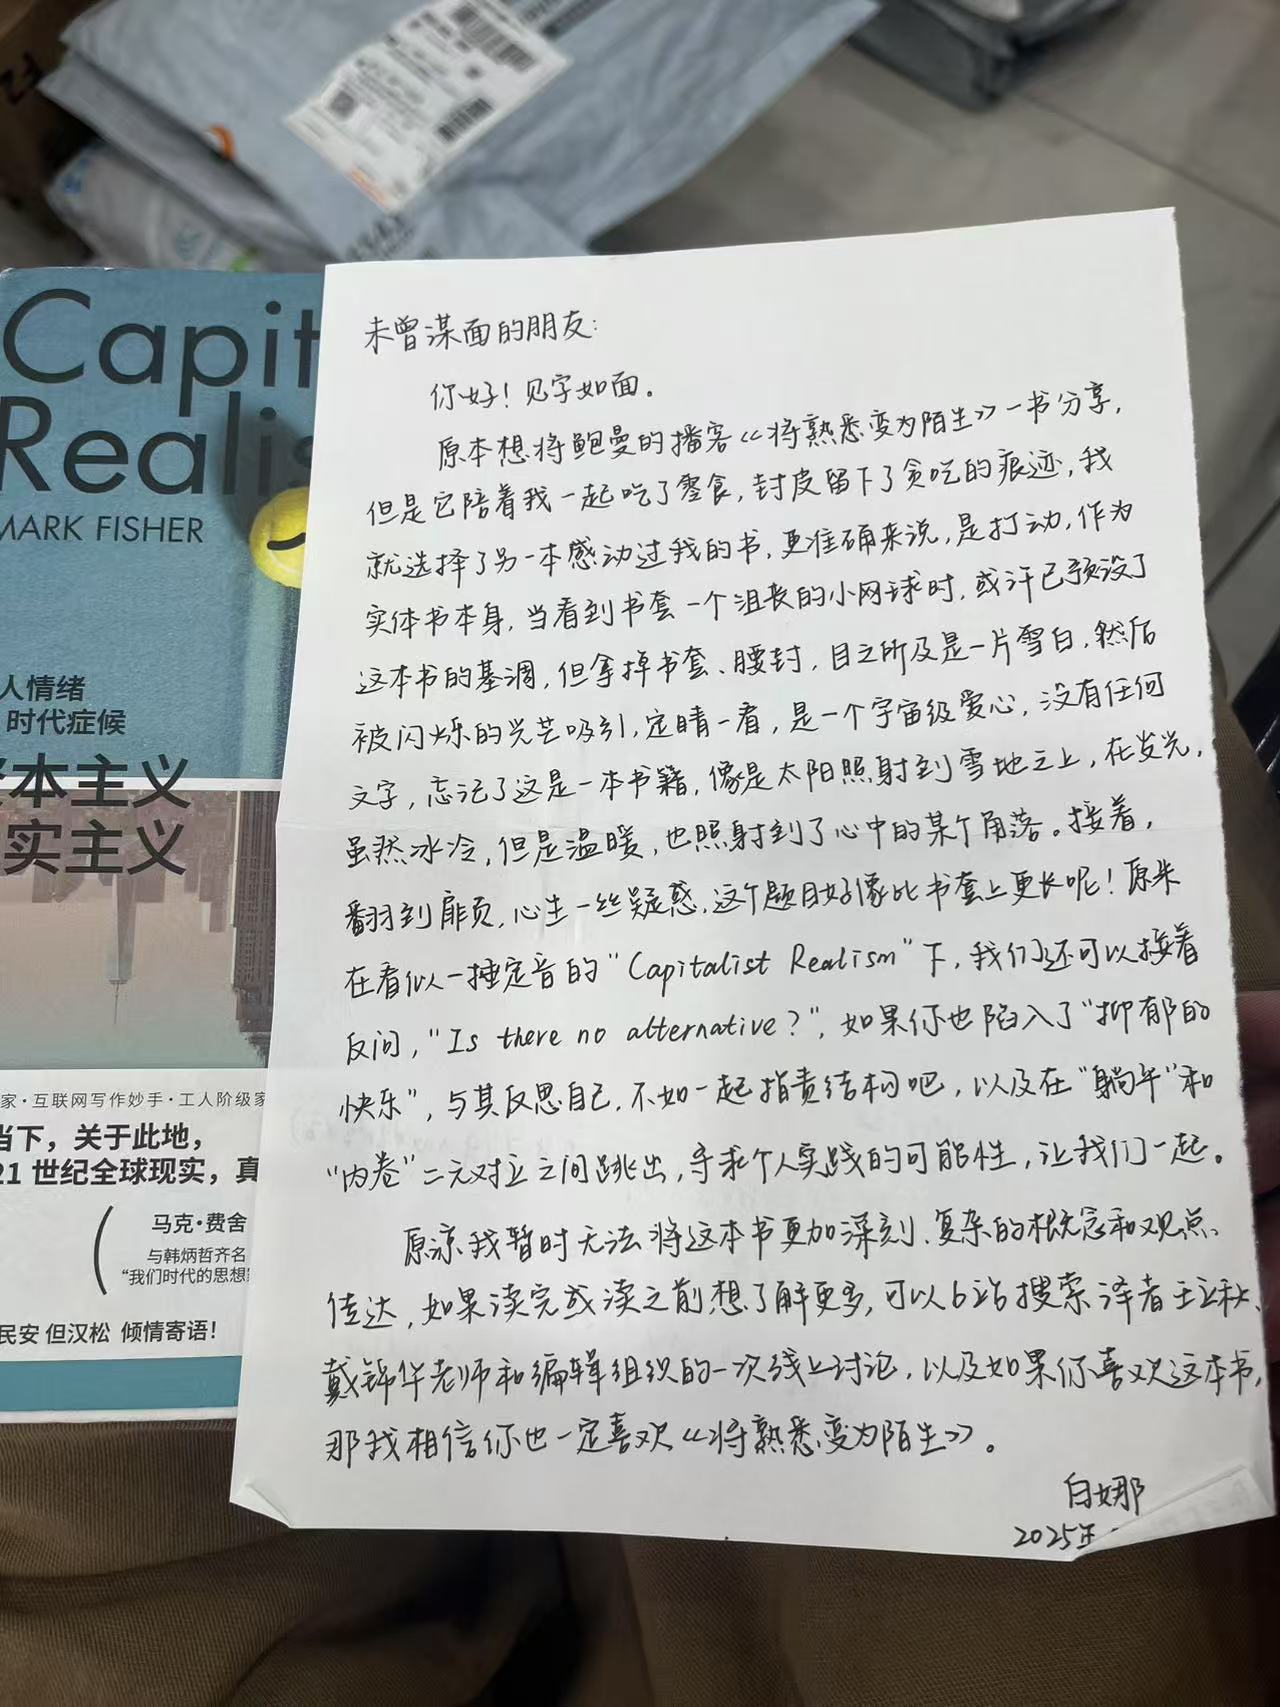 Capit
Realis
MARK FISHER
人情绪
时代症候
资本主义
实主义
家·互联网写作妙手·工人阶级家
当下，关于此地，
21世纪全球现实，真
马克·费舍
与韩炳哲齐名
“我们时代的思想
民安 但汉松 倾情寄语！
未曾谋面的朋友：
你好！见字如面。
原本想将鲍曼的播客《将熟悉变为陌生》一书分享，
但是它陪着我一起吃了零食，封皮留下了贪吃的痕迹，我
就选择了另一本感动过我的书，更准确来说，是打动，作为
实体书本身，当看到书套一个沮丧的小网球时，或许已预设了
这本书的基调，但拿掉书套、腰封，目之所及是一片雪白，然后
被闪烁的光芒吸引，定睛一看，是一个宇宙级爱心，没有任何
文字，忘记了这是一本书籍，像是太阳照射到雪地之上，在发光，
虽然冰冷，但是温暖，也照射到了心中的某个角落。接着，
翻到扉页，心生一丝疑惑，这个题目好像比书套上更长呢！原来
在看似一捶定音的“Capitalist Realism”下，我们还可以接着
反问，“Is there no alternative？”，如果你也陷入了“抑郁的
快乐”，与其反思自己，不如一起指责结构吧，以及在“躺平”和
“内卷”二元对立之间跳出，寻求个人实践的可能性，让我们一起。
原谅我暂时无法将这本书更加深刻、复杂的概念和观点
传达，如果读完或读之前想了解更多，可以b站搜索译者王立秋、
戴锦华老师和编辑组织的一次线上讨论，以及如果你喜欢这本书，
那我相信你也一定喜欢《将熟悉变为陌生》。
白娜
2025年